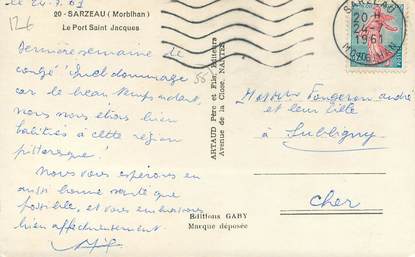 le 24.7.61
12€
20 - SARZEAU (Morbihan)
Le Port Saint Jacques
Dernière semaine de
congé! Quel dommage
car le beau temps aidant,
nous nous étions bien
habitués à cette région
pittoresque!
Nous vous espérons en
aussi bonne santé que
possible, et vous embrassons
bien affectueusement
ARTAUD Père et Fils, Éditeurs
Avenue de la Close, NANTES
Editions GABY
Marque déposée
SARZEAU
20 H
24
1961
MORBIHAN
Fougeron André
et leur fille
à Subligny
Cher